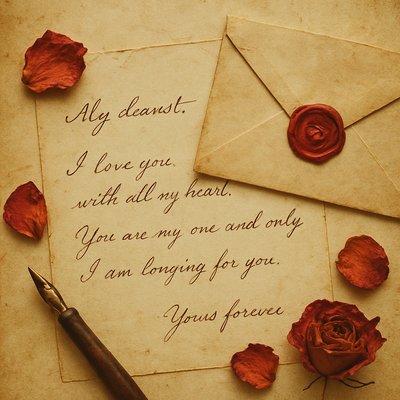 Aly deanst.
I love you
with all ny heart.
You are my one and only
I am longing for you.
Yours forevec